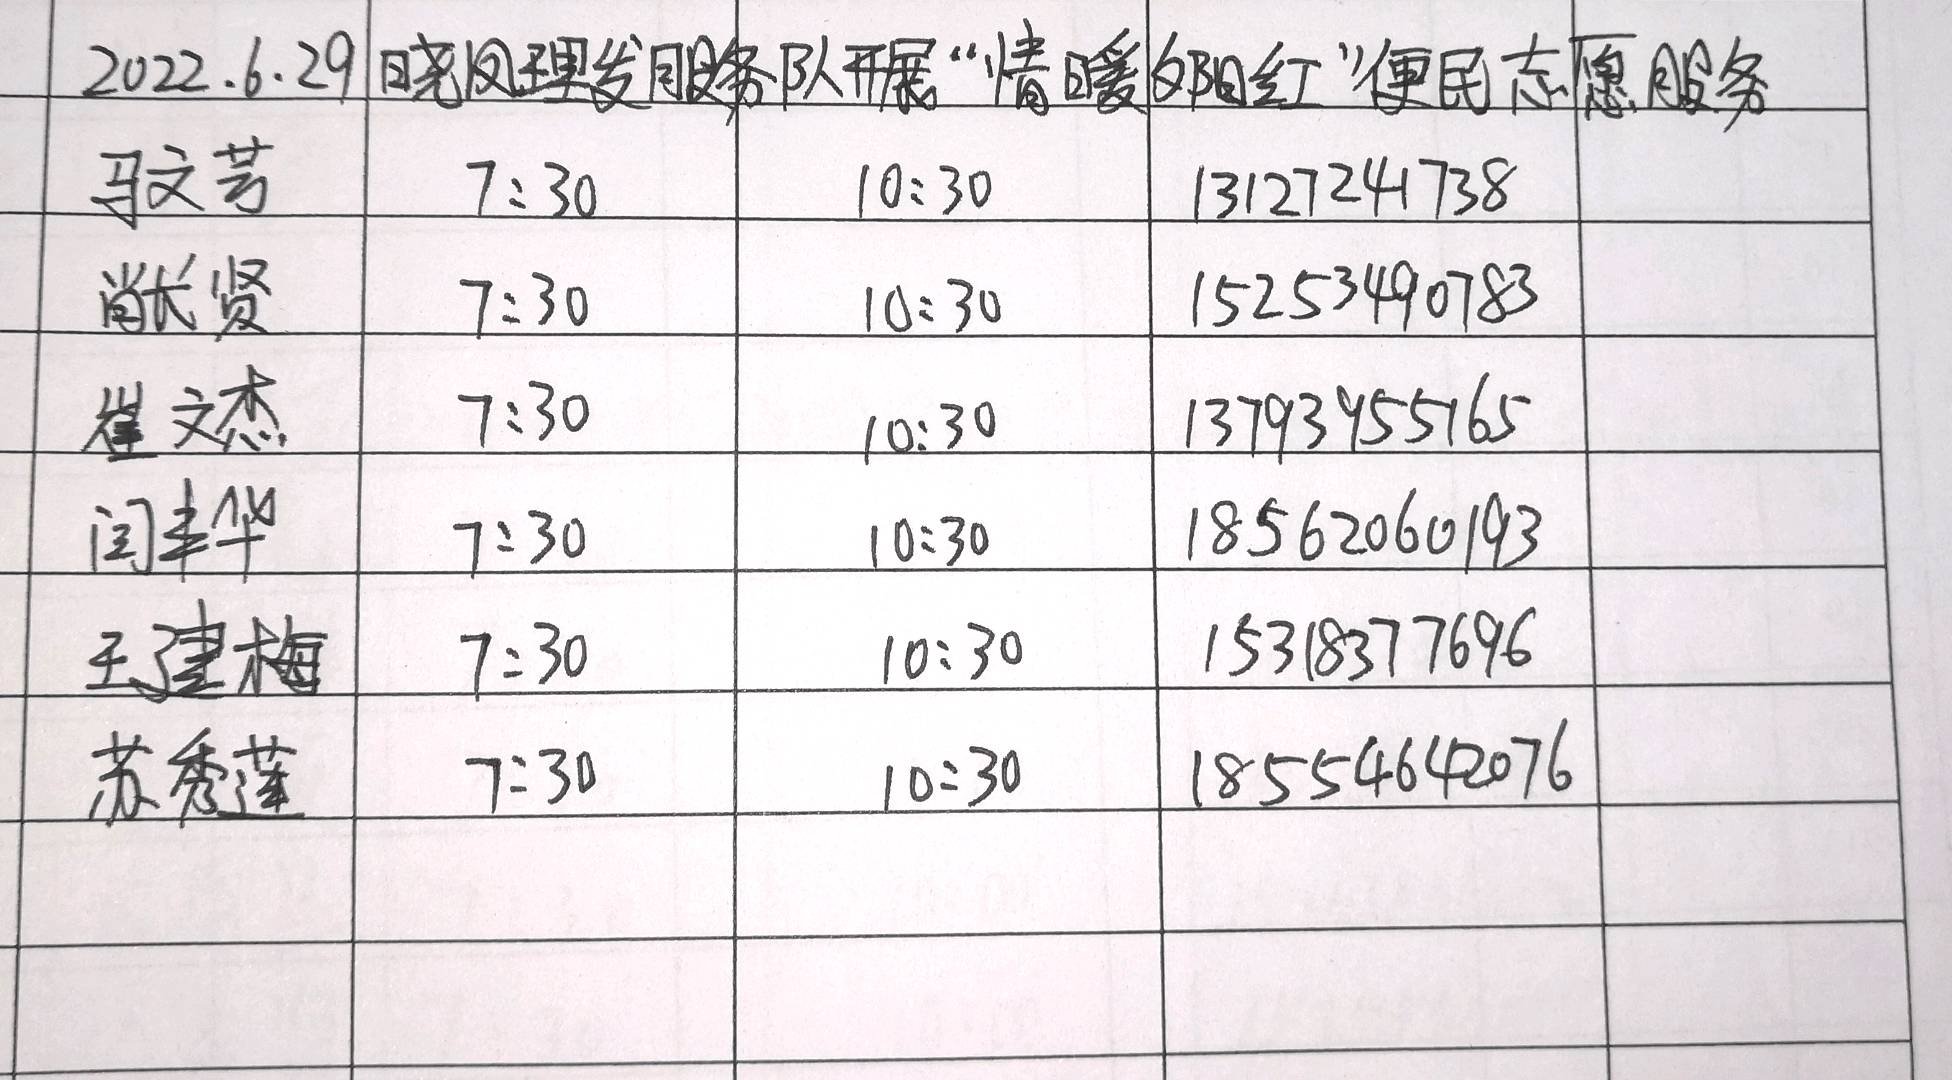 2022.6.29 晓凤理发服务队开展“情暖夕阳红”便民志愿服务
马文芳 7:30 10:30 13127241738
肖长贤 7:30 10:30 15253490783
崔文杰 7:30 10:30 13793455765
闫丰华 7:30 10:30 18562060193
王建梅 7:30 10:30 15318377696
苏秀莲 7:30 10:30 18554642076